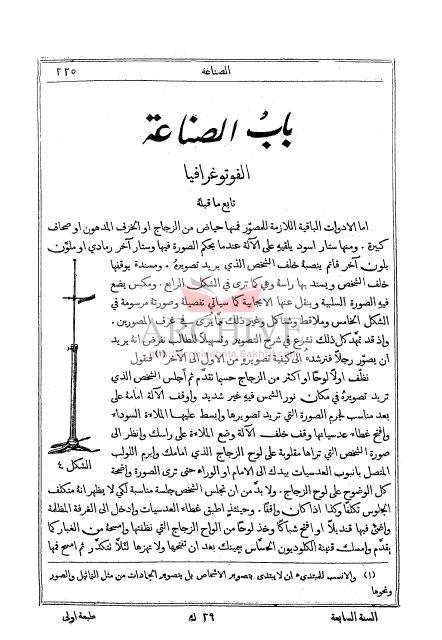 الصناعة
٢٢٥
باب الصناعة
الفوتوغرافيا
تابع ما قبلهُ
اما الادوات الباقية اللازمة للمصوّر فمنها حياض من الزجاج او الخزف المدهون او صحاف
كبيرة . ومنها ستار اسود يلقيهِ على الآلة عندما يحكم الصورة فيها وستار آخر رمادي او ملوّن
بلون آخر قاتم ينصبهُ خلف الشخص الذي يريد تصويرهُ . ومسندة يوقفها
خلف الشخص ويسند بها راسهُ وهي كما ترى في الشكل الرابع . ومكبس يضع
فيهِ الصورة السلبية وينقل عنها الايجابية كما سياتي تفصيلهُ وصورتهُ مرسومة في
الشكل الخامس وملاقط وشناكل وغير ذلك مما يُرى في غرف المصورين .
وإذ قد تمهد كل ذلك نشرع في شرح التصوير وتسهيلاً للطالب نفرض انهُ يريد
ان يصوّر رجلاً فنرشدهُ الى كيفية تصويرهِ من الاول الى الآخر (١) فنقول
نظّف اولاً لوحاً او اكثر من الزجاج حسبما تقدَّم ثم أجلس الشخص الذي
تريد تصويرهُ في مكان نور الشمس فيهِ غير شديد وأوقف الآلة امامهُ على
بعد مناسب لجرم الصورة التي تريد تصويرها وابسط عليها الملاءة السوداء
وافتح غطاء عدسياتها وقف خلف الآلة وضع الملاءة على راسك وانظر الى
صورة الشخص التي تراها مقلوبة على لوح الزجاج الذي امامك وابرم اللولب
المتصل بانبوب العدسيات بيدك الى الامام او الوراء حتى ترى الصورة واضحة
الشكل ٤
كل الوضوح على لوح الزجاج . ولا بدَّ من ان تجلس الشخص جلسة مناسبة لكي لا يظهر انهُ متكلف
الجلوس تكلفاً وكذا اذا كان واقفاً . وحينئذٍ اطبق غطاء العدسيات وادخل الى الغرفة المظلمة
واغلق فيها قنديلاً او افتح شباكاً وخذ لوحاً من الواح الزجاج التي نظفتها وامسحهُ من الغبار كما
تقدَّم وامسك قنينة الكلوديون الحسَّاس بيمينك بعد ان تفتحها ولا تهزها لئلاَّ تتكدَّر ثم امسح فمها
(١) والانسب للمبتدىء ان لا يبتدى بتصوير الاشخاص بل بتصوير الجمادات من مثل التماثيل والصور
ونحوها
السنة السابعة
٢٩ ك
طبعة اولى
ARCHIVE